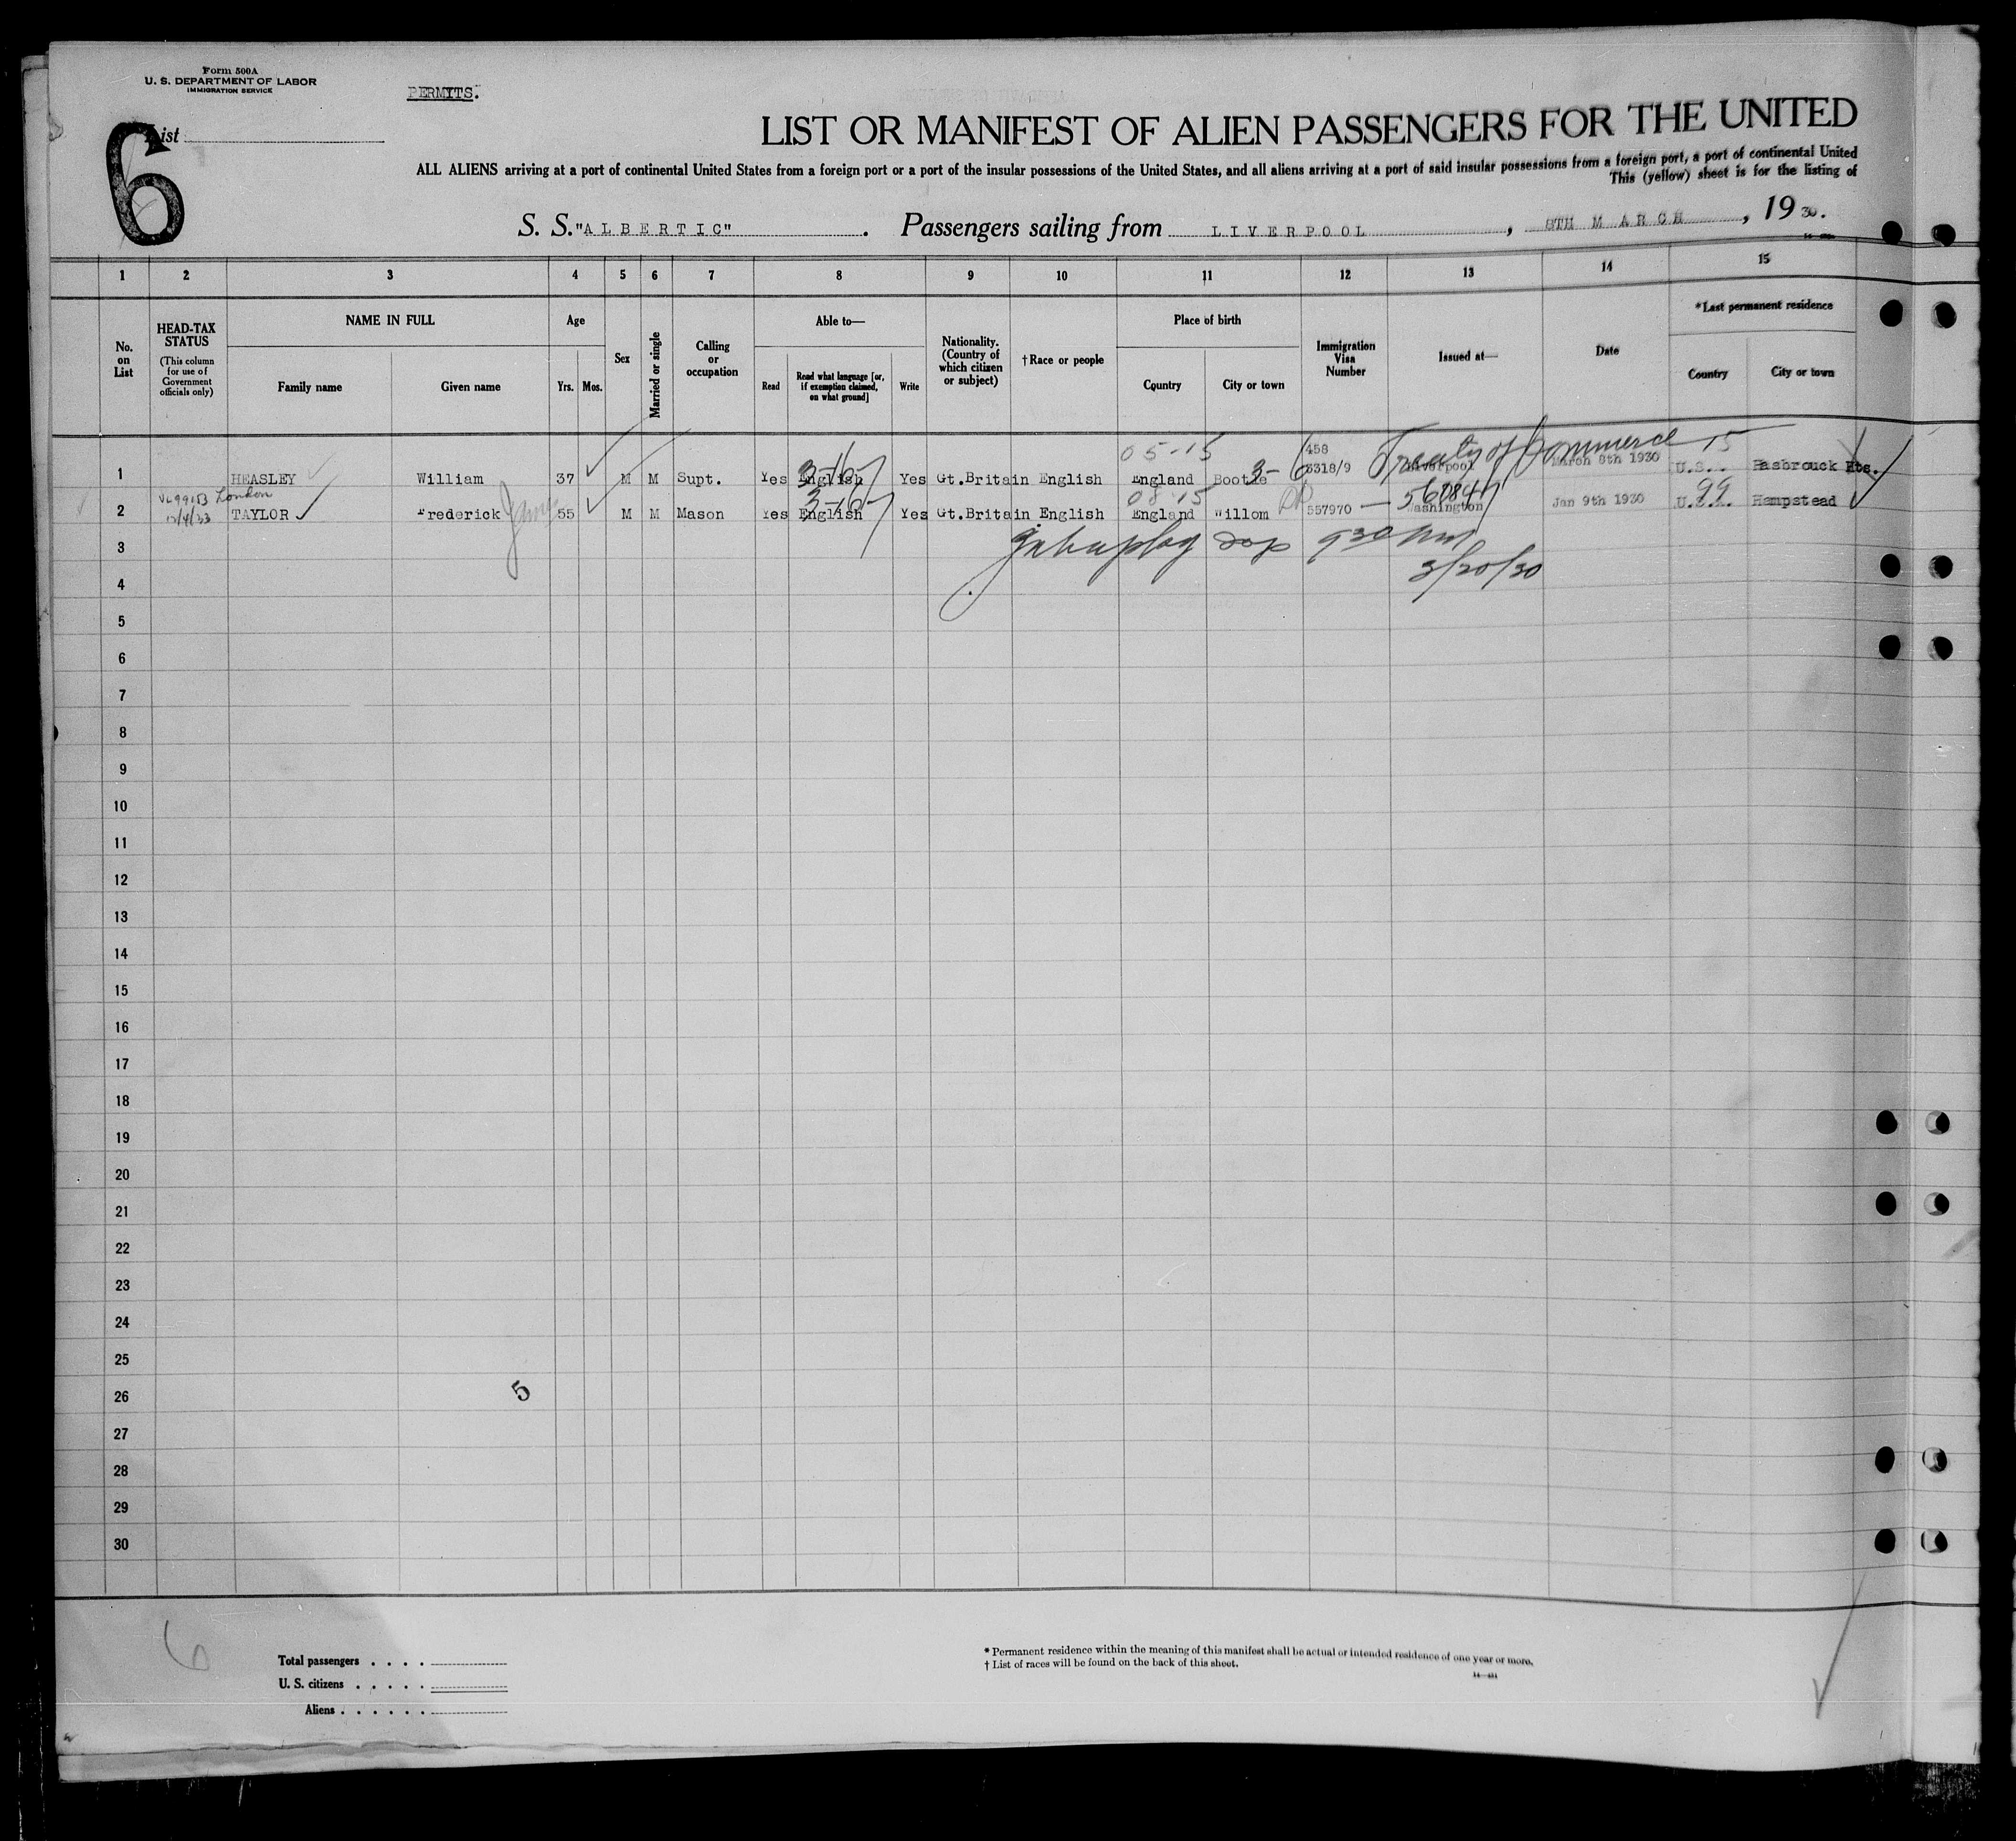 Form 500A
U. S. DEPARTMENT OF LABOR
IMMIGRATION SERVICE
PERMITS.
List
6
LIST OR MANIFEST OF ALIEN PASSENGERS FOR THE UNITED
ALL ALIENS arriving at a port of continental United States from a foreign port or a port of the insular possessions of the United States, and all aliens arriving at a port of said insular possessions from a foreign port, a port of continental United
This (yellow) sheet is for the listing of
S. S. "ALBERTIC". Passengers sailing from LIVERPOOL, 8TH MARCH, 1930.
1 2 3 4 5 6 7 8 9 10 11 12 13 14 15
No. on List
HEAD-TAX STATUS
(This column for use of Government officials only)
NAME IN FULL
Family name Given name
Age
Yrs. Mos.
Sex
Married or single
Calling or occupation
Able to—
Read
Read what language [or, if exemption claimed, on what ground]
Write
Nationality. (Country of which citizen or subject)
†Race or people
Place of birth
Country City or town
Immigration Visa Number
Issued at—
Date
*Last permanent residence
Country City or town
05-15 458 Treaty of Commerce 15
1 HEASLEY William 37 M M Supt. Yes English Yes Gt.Britain English England Bootle 3318/9 Liverpool March 8th 1930 U.S.. Hasbrouck Hts.
London
08-15 560847 99
2 TAYLOR Frederick James 55 M M Mason Yes English Yes Gt.Britain English England Willom 557970 Washington Jan 9th 1930 U.S. Hempstead
3 930
4 3/20/30
5
6
7
8
9
10
11
12
13
14
15
16
17
18
19
20
21
22
23
24
25
26 5
27
28
29
30
6
Total passengers . . . .
U. S. citizens . . . . .
Aliens . . . . . .
* Permanent residence within the meaning of this manifest shall be actual or intended residence of one year or more.
† List of races will be found on the back of this sheet.